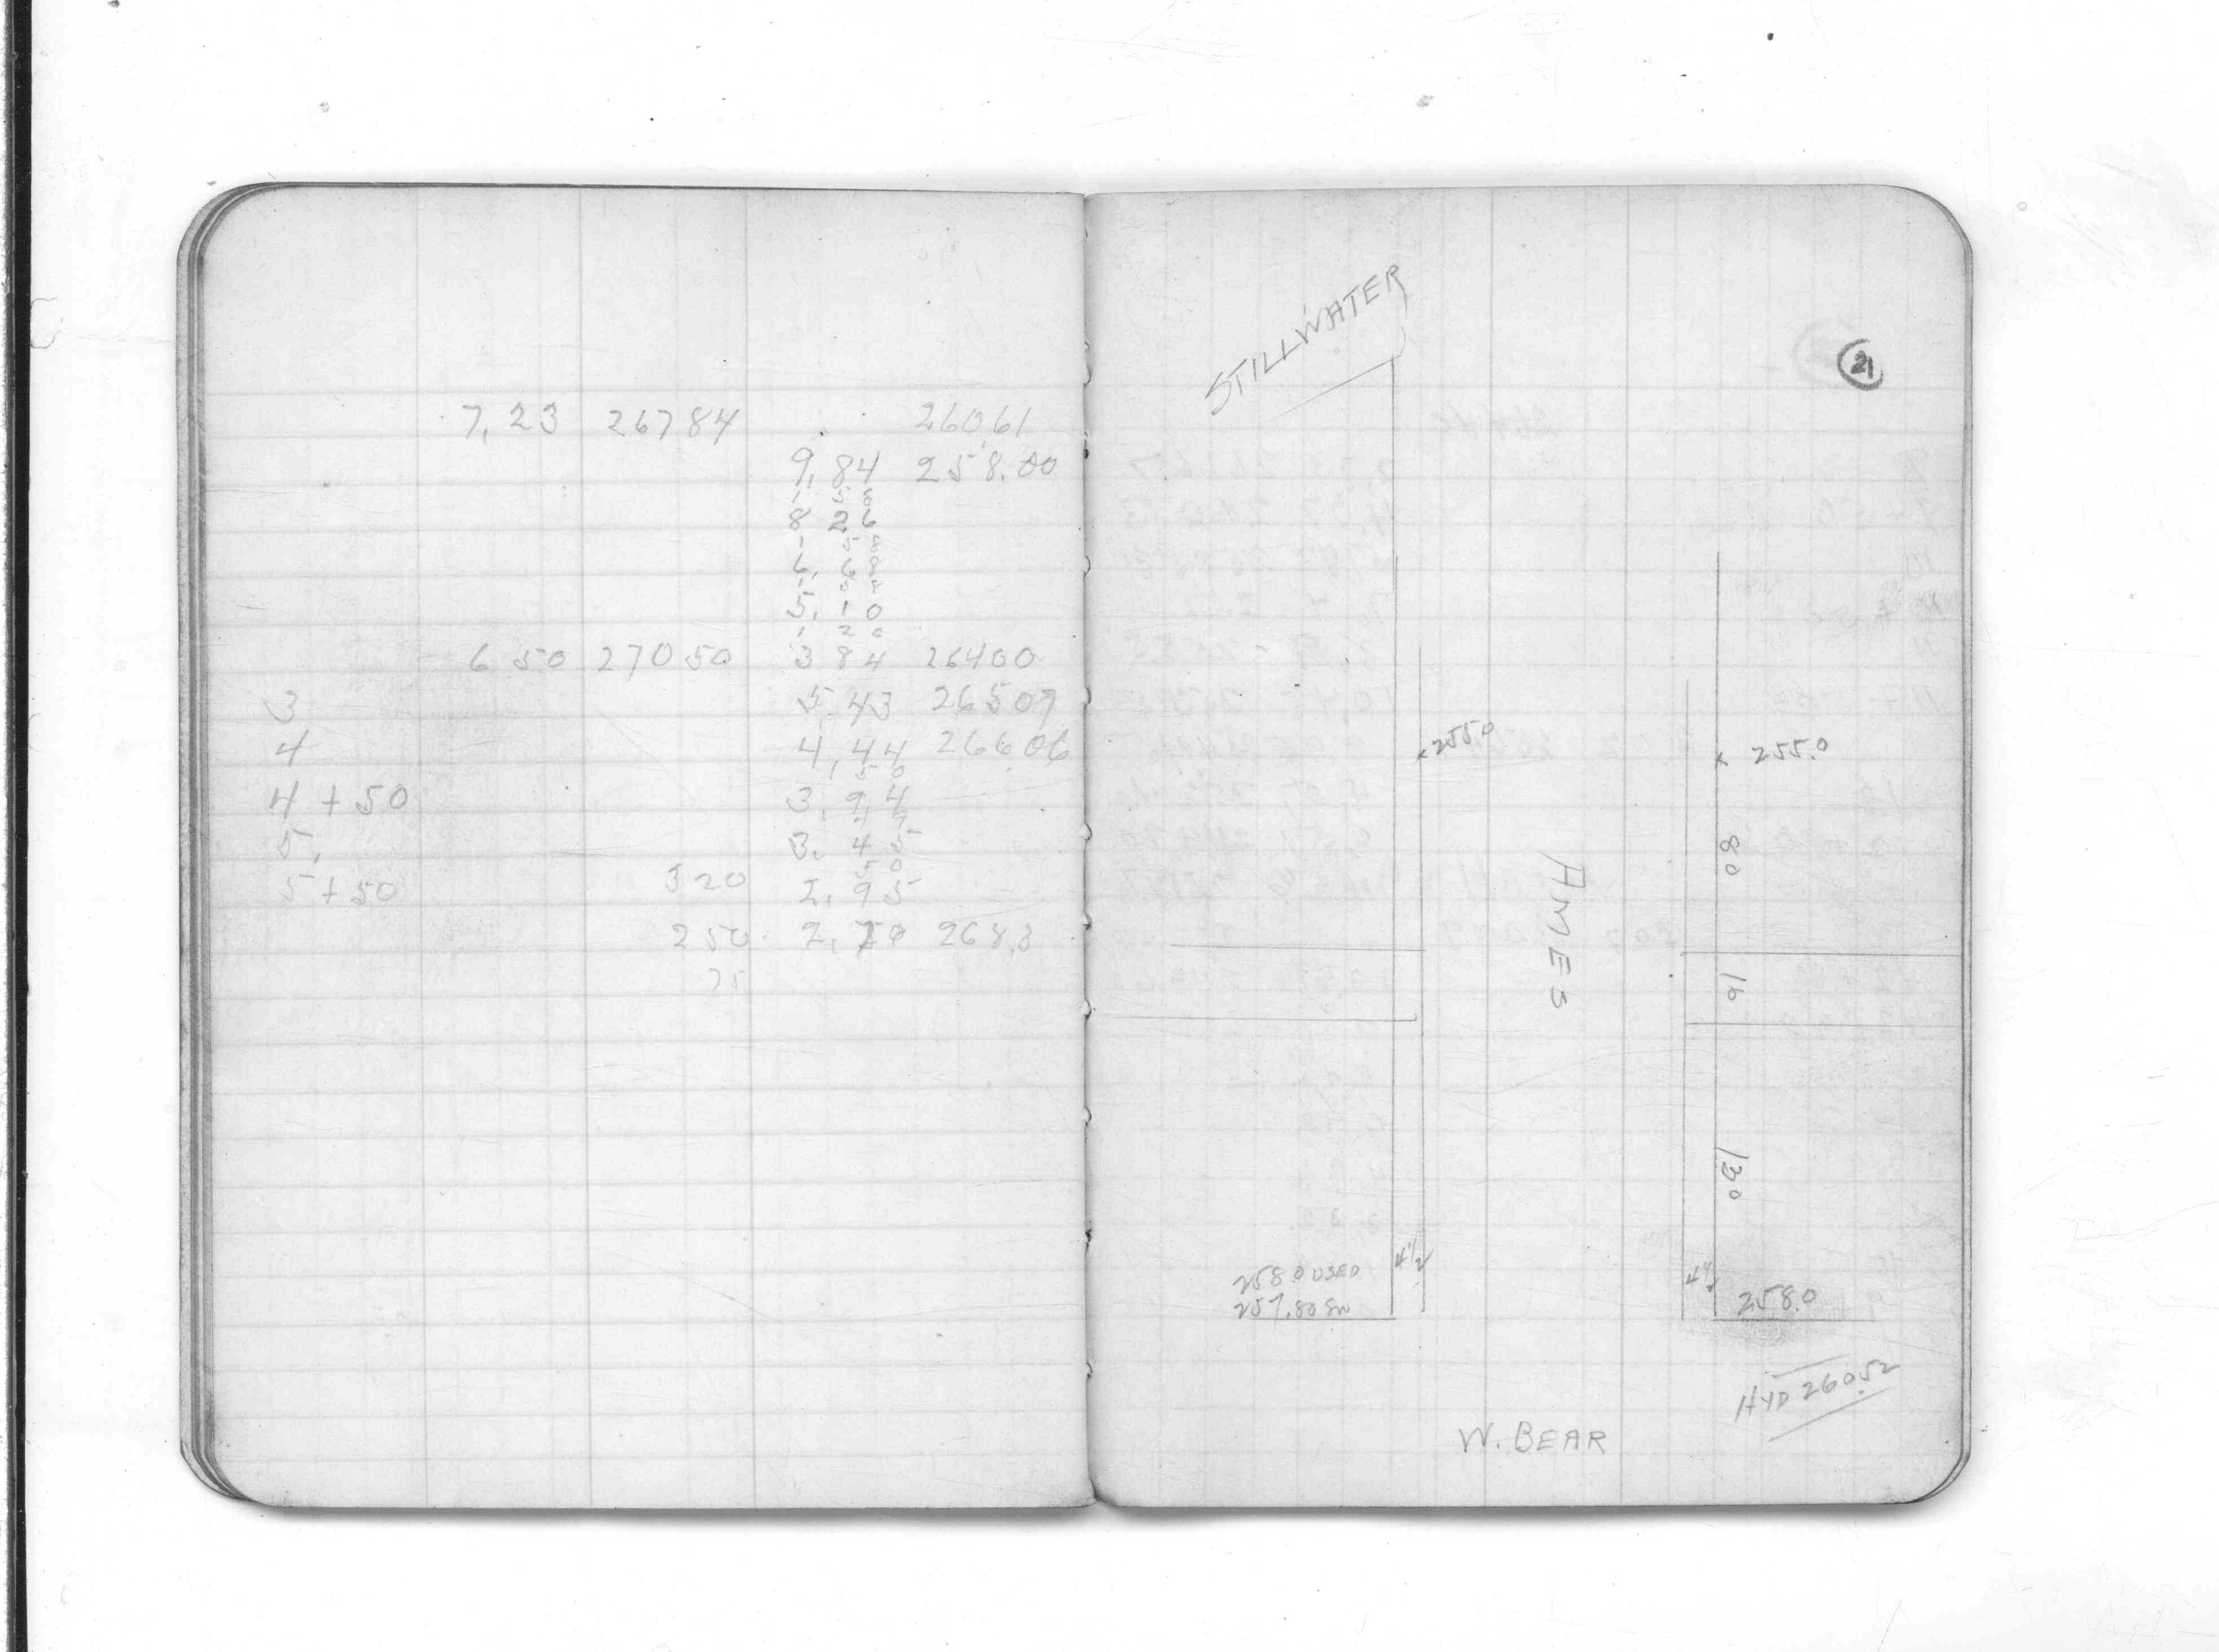 7,23 26784 260,61
9,84 258.00
1 5 8
8 26
1 5 8
6, 68
1 5 8
5, 10
1 2 6
6 50 27050 3 84 26400
3 5.43 26507
4 4,44 266.06
50
4+50 3,94
49
5. 3. 45
50
5+50 320 2,95
250 268.3
75
21
STILLWATER
x 255.0
x 255.0
80
AMES
16
130
4 1/2
4 1/2
258.0 USED
257.80 SW
258.0
HYD 260.52
W. BEAR